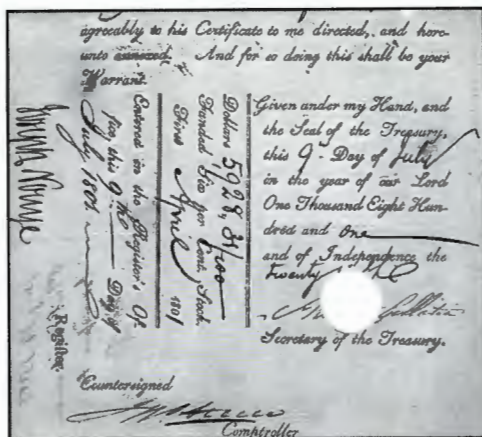 agreeably to his Certificate to me directed, and here-
unto annexed. And for so doing this shall be your
Warrant.
Given under my Hand, and
the Seal of the Treasury,
this 9 - Day of July
in the year of our Lord
One Thousand Eight Hun-
dred and one
and of Independence the
twenty
Secretary of the Treasury.
Dollars 5928,
Funded Six per Cent. Stock.
April 1801
Entered in the Register's Of-
fice this 9th Day of
July 1801
Joseph Nourse
Register.
Countersigned
Comptroller